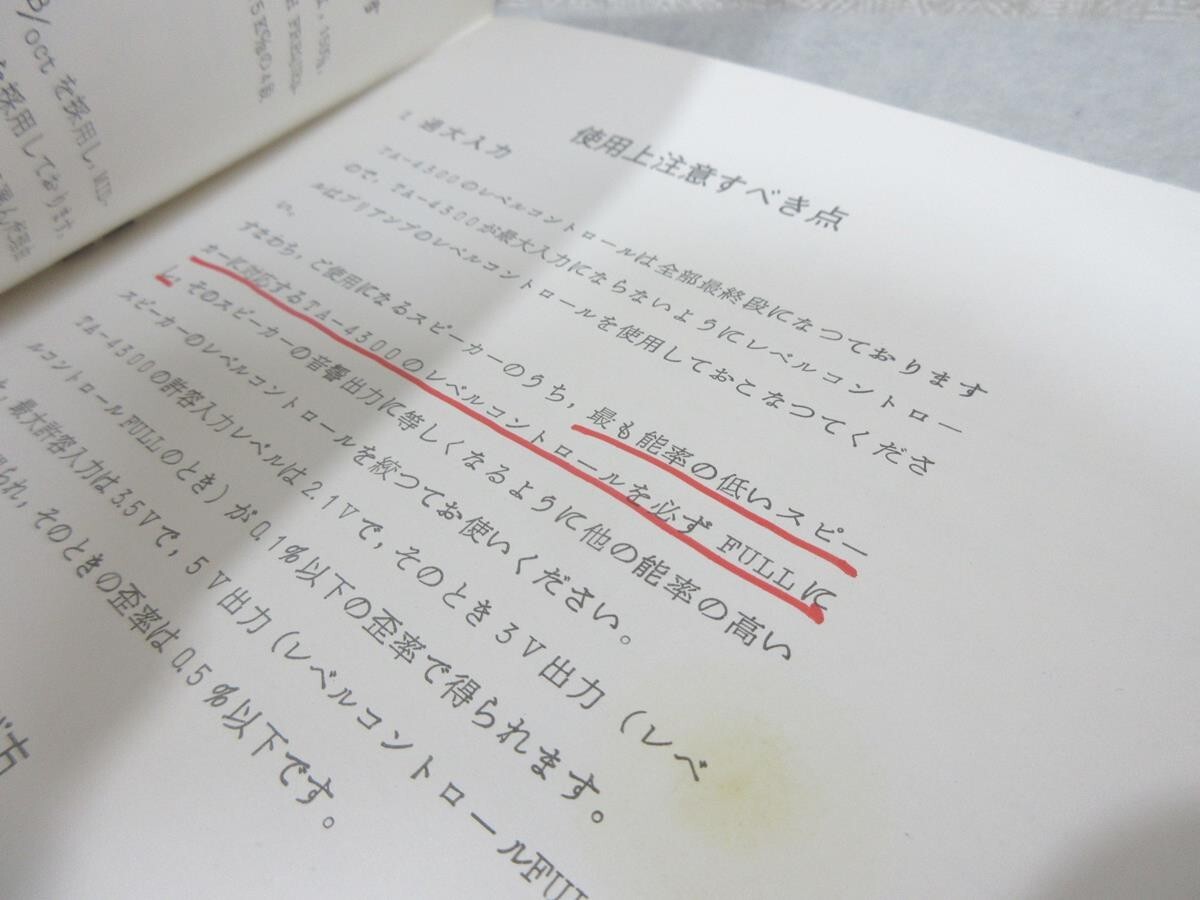 /octを採用し，MID-
を採用しております。
使用上注意すべき点
1 過大入力
TA-4300のレベルコントロールは全部最終段になつております
ので，TA-4300が最大入力にならないようにレベルコントロー
ルはプリアンプのレベルコントロールを使用しておこなつてくださ
い。
すなわち，ご使用になるスピーカーのうち，最も能率の低いスピー
カーに対応するTA-4300のレベルコントロールを必ずFULLに
し，そのスピーカーの音響出力に等しくなるように他の能率の高い
スピーカーのレベルコントロールを絞つてお使いください。
TA-4300の許容入力レベルは2.1Vで，そのとき3V出力（レベ
ルコントロールFULLのとき）が0.1%以下の歪率で得られます。
，最大許容入力は3.5Vで，5V出力（レベルコントロールFUL
られ，そのときの歪率は0.5%以下です。
方